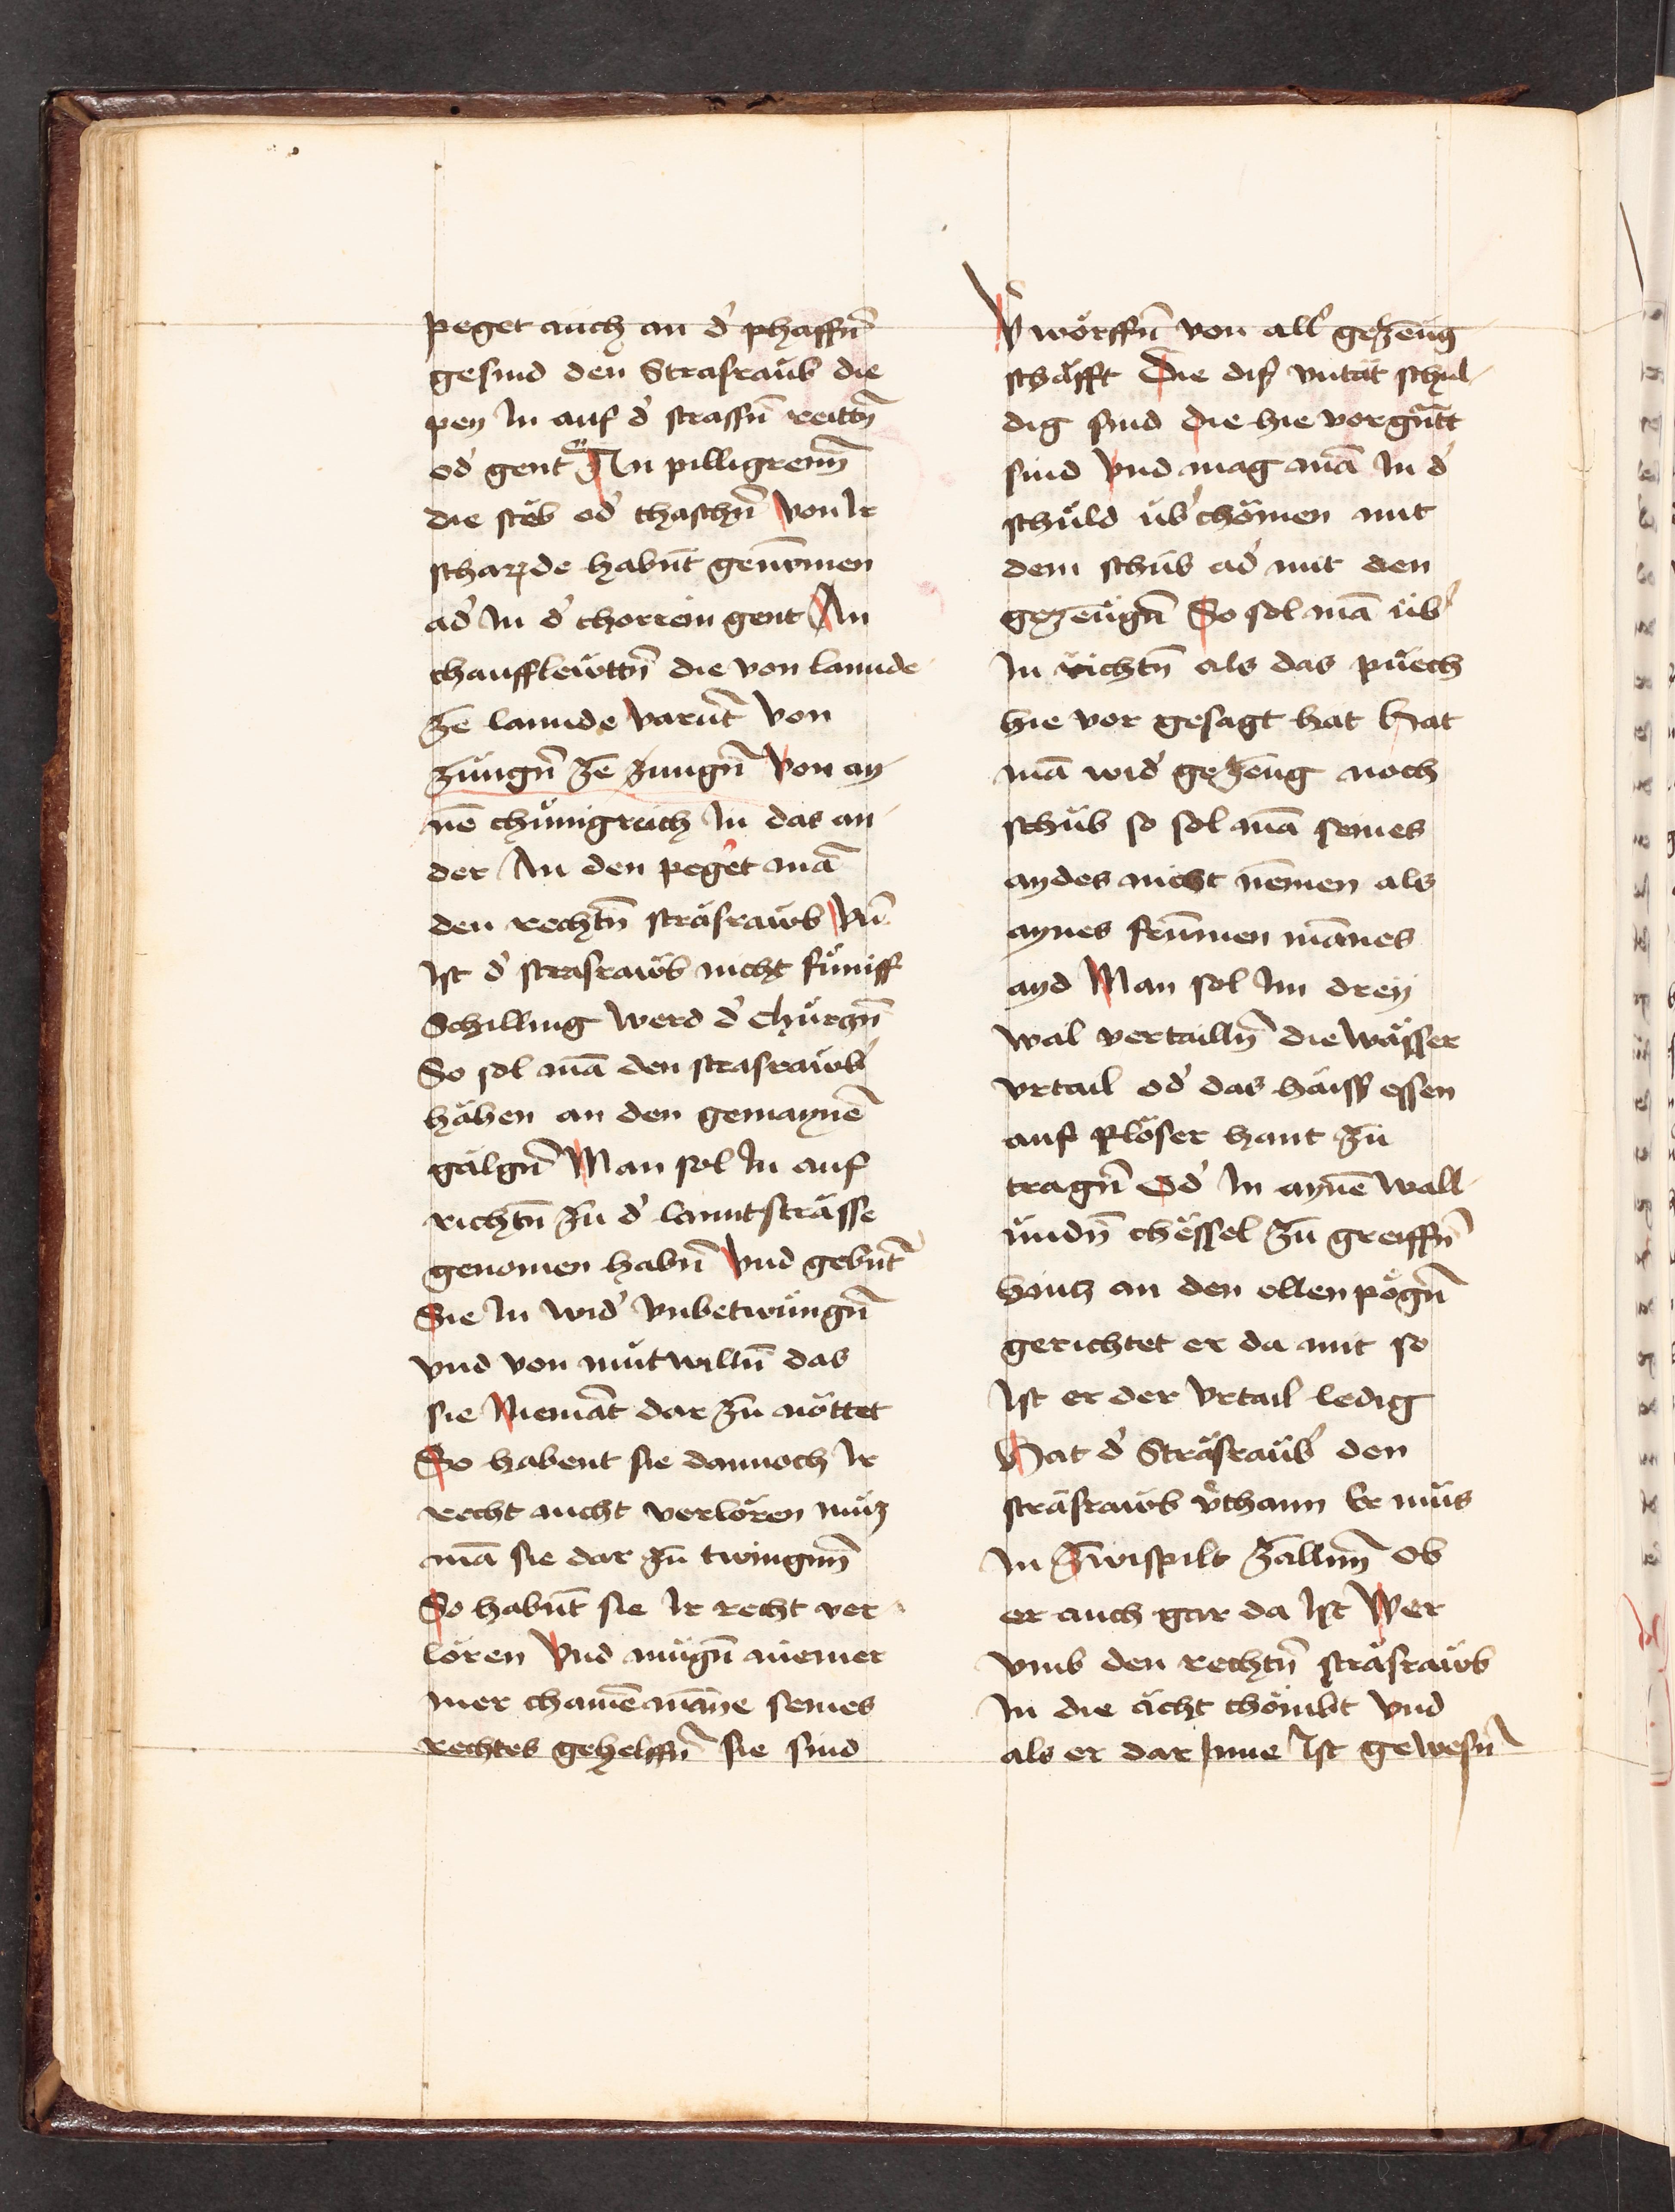 peget auch an d' phaffn̄
gesind den Strasraǔb die
pey In auf d' strassn̄ reittn̄
od' gent An pilligreimn̄
die steb od' thaschn̄ Von Ir
scharzde habn̄t genōmen
ad' In d' chorrein gent An
chauffleẅttn̄ die von lannde
ze lannde Varn̄t Von
züngn̄ ze zungn̄ Von ay-
nē chünigreich In das an-
der An den peget mā
den rechtn̄ sträsraẅb Vn̄
Ist d' strasraẅb nicht füniff
Schilling werd d' chürczn̄
So sol mā den strasraẅb'
häben an den gemaynē
gälgn̄ Man sol In auf
richtn̄ zu d' lanntsträsse
genomen habn̄ Vnd gebn̄t
Sie In wid' Vnbetwüngn̄
vnd von mütwilln̄ das
sie Niemāt dar zu nöttet
So habent sie dannoch Ir
recht nicht verlören müz
mā sie dar zu twingnn̄
So habn̄t sie Ir recht ver-
lören Vnd mügn̄ niemer
mer chainē māne seines
rechtes gehelffn̄ sie sind
V'wörffn̄ von all' gezeüg
schäfft Die diß vntät schul-
dig sind die hie vorgn̄tt
sind Vnd mag mā In d'
schüld üb'chömen mit
dem schüb ad' mit den
gezeügn̄ So sol mā üb'
In richtn̄ als das püech
hie vor gesagt hat Hat
mā wid' gezeüg noch
schüb so sol mā seines
aydes nicht nemen als
aynes frümen mānes
ayd Man sol Im dreÿ
wal vertailln̄ die wässer
vrtail od' das häiss essen
auf plöser hant zu
tragn̄ Od' In aynē wall-
ündn̄ chessel zu greiffn̄
hintz an den ellenpögn̄
gerichtet er da mit so
Ist er der vrtail ledig
Hat d' Sträsraüb' den
sträsraẅb v'thann Er müs
In zwispilt zallnn̄ Ob
er auch gar da Ist Wer
vmb den rechtn̄ sträsraẅb
In die ächt chömbt vnd
als er dar Inne Ist gewesn̄